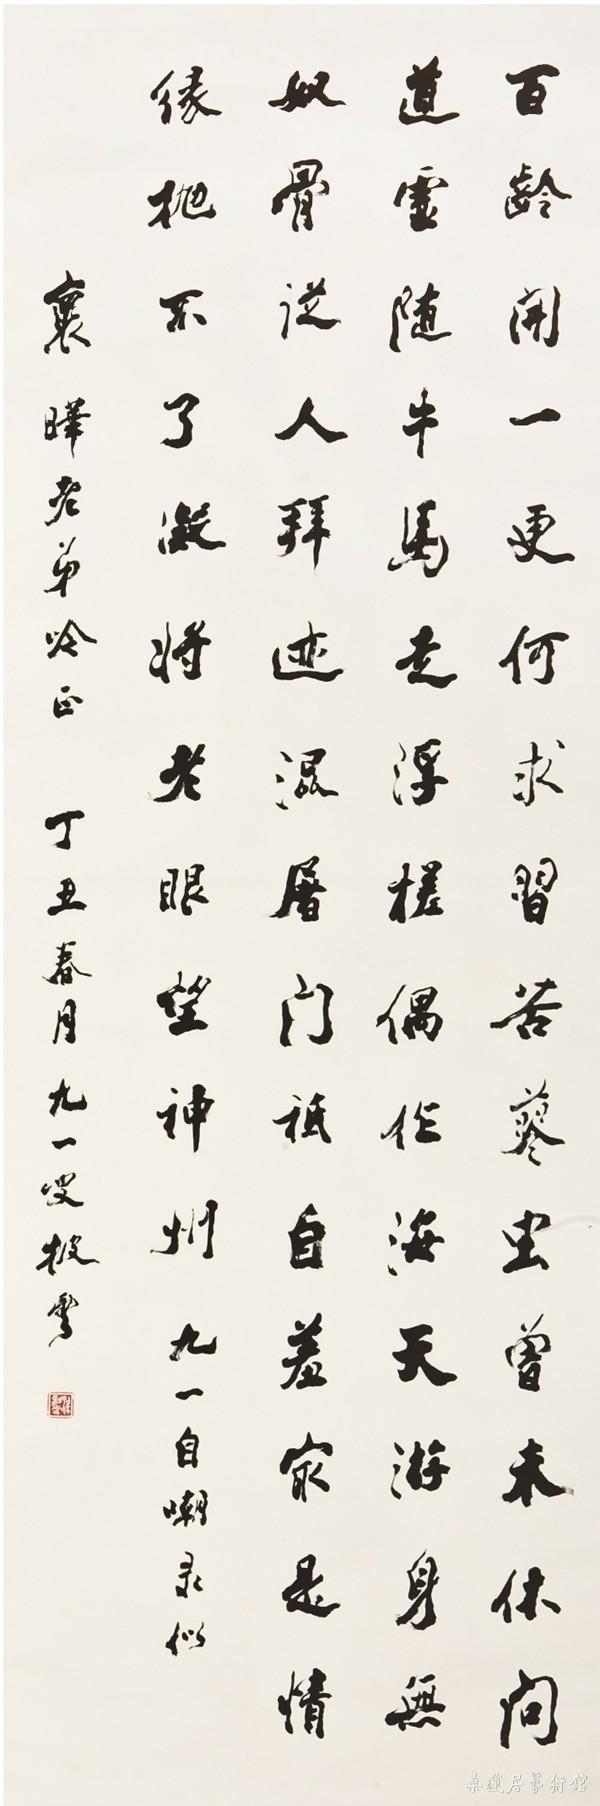 百齡開一更何求習苦蓼虫曾未休問
道靈随牛馬走浮槎偶作海天游身無
奴骨従人拜迹混屠门祗自羞家是情
缘抛不了凝将老眼望神州 九一自嘲录似
襄暐老弟吟正 丁丑春月九一叟披雲
桑蓮居藝術館